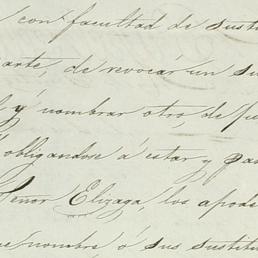 con facultad de sustit
arte, de revocar un su
y nombrar otro, de
obligandose á estar y pa
Señor Elizaga, los apode
nombre ó sus sustitu